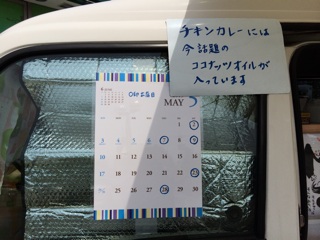 チキンカレーには
今話題の
ココナッツオイルが
入っています
MAY 5
1 2
3 4 5 6 7 8 9
10 11 12 13 14 15 16
17 18 19 20 21 22 23
25 26 27 28 29 30